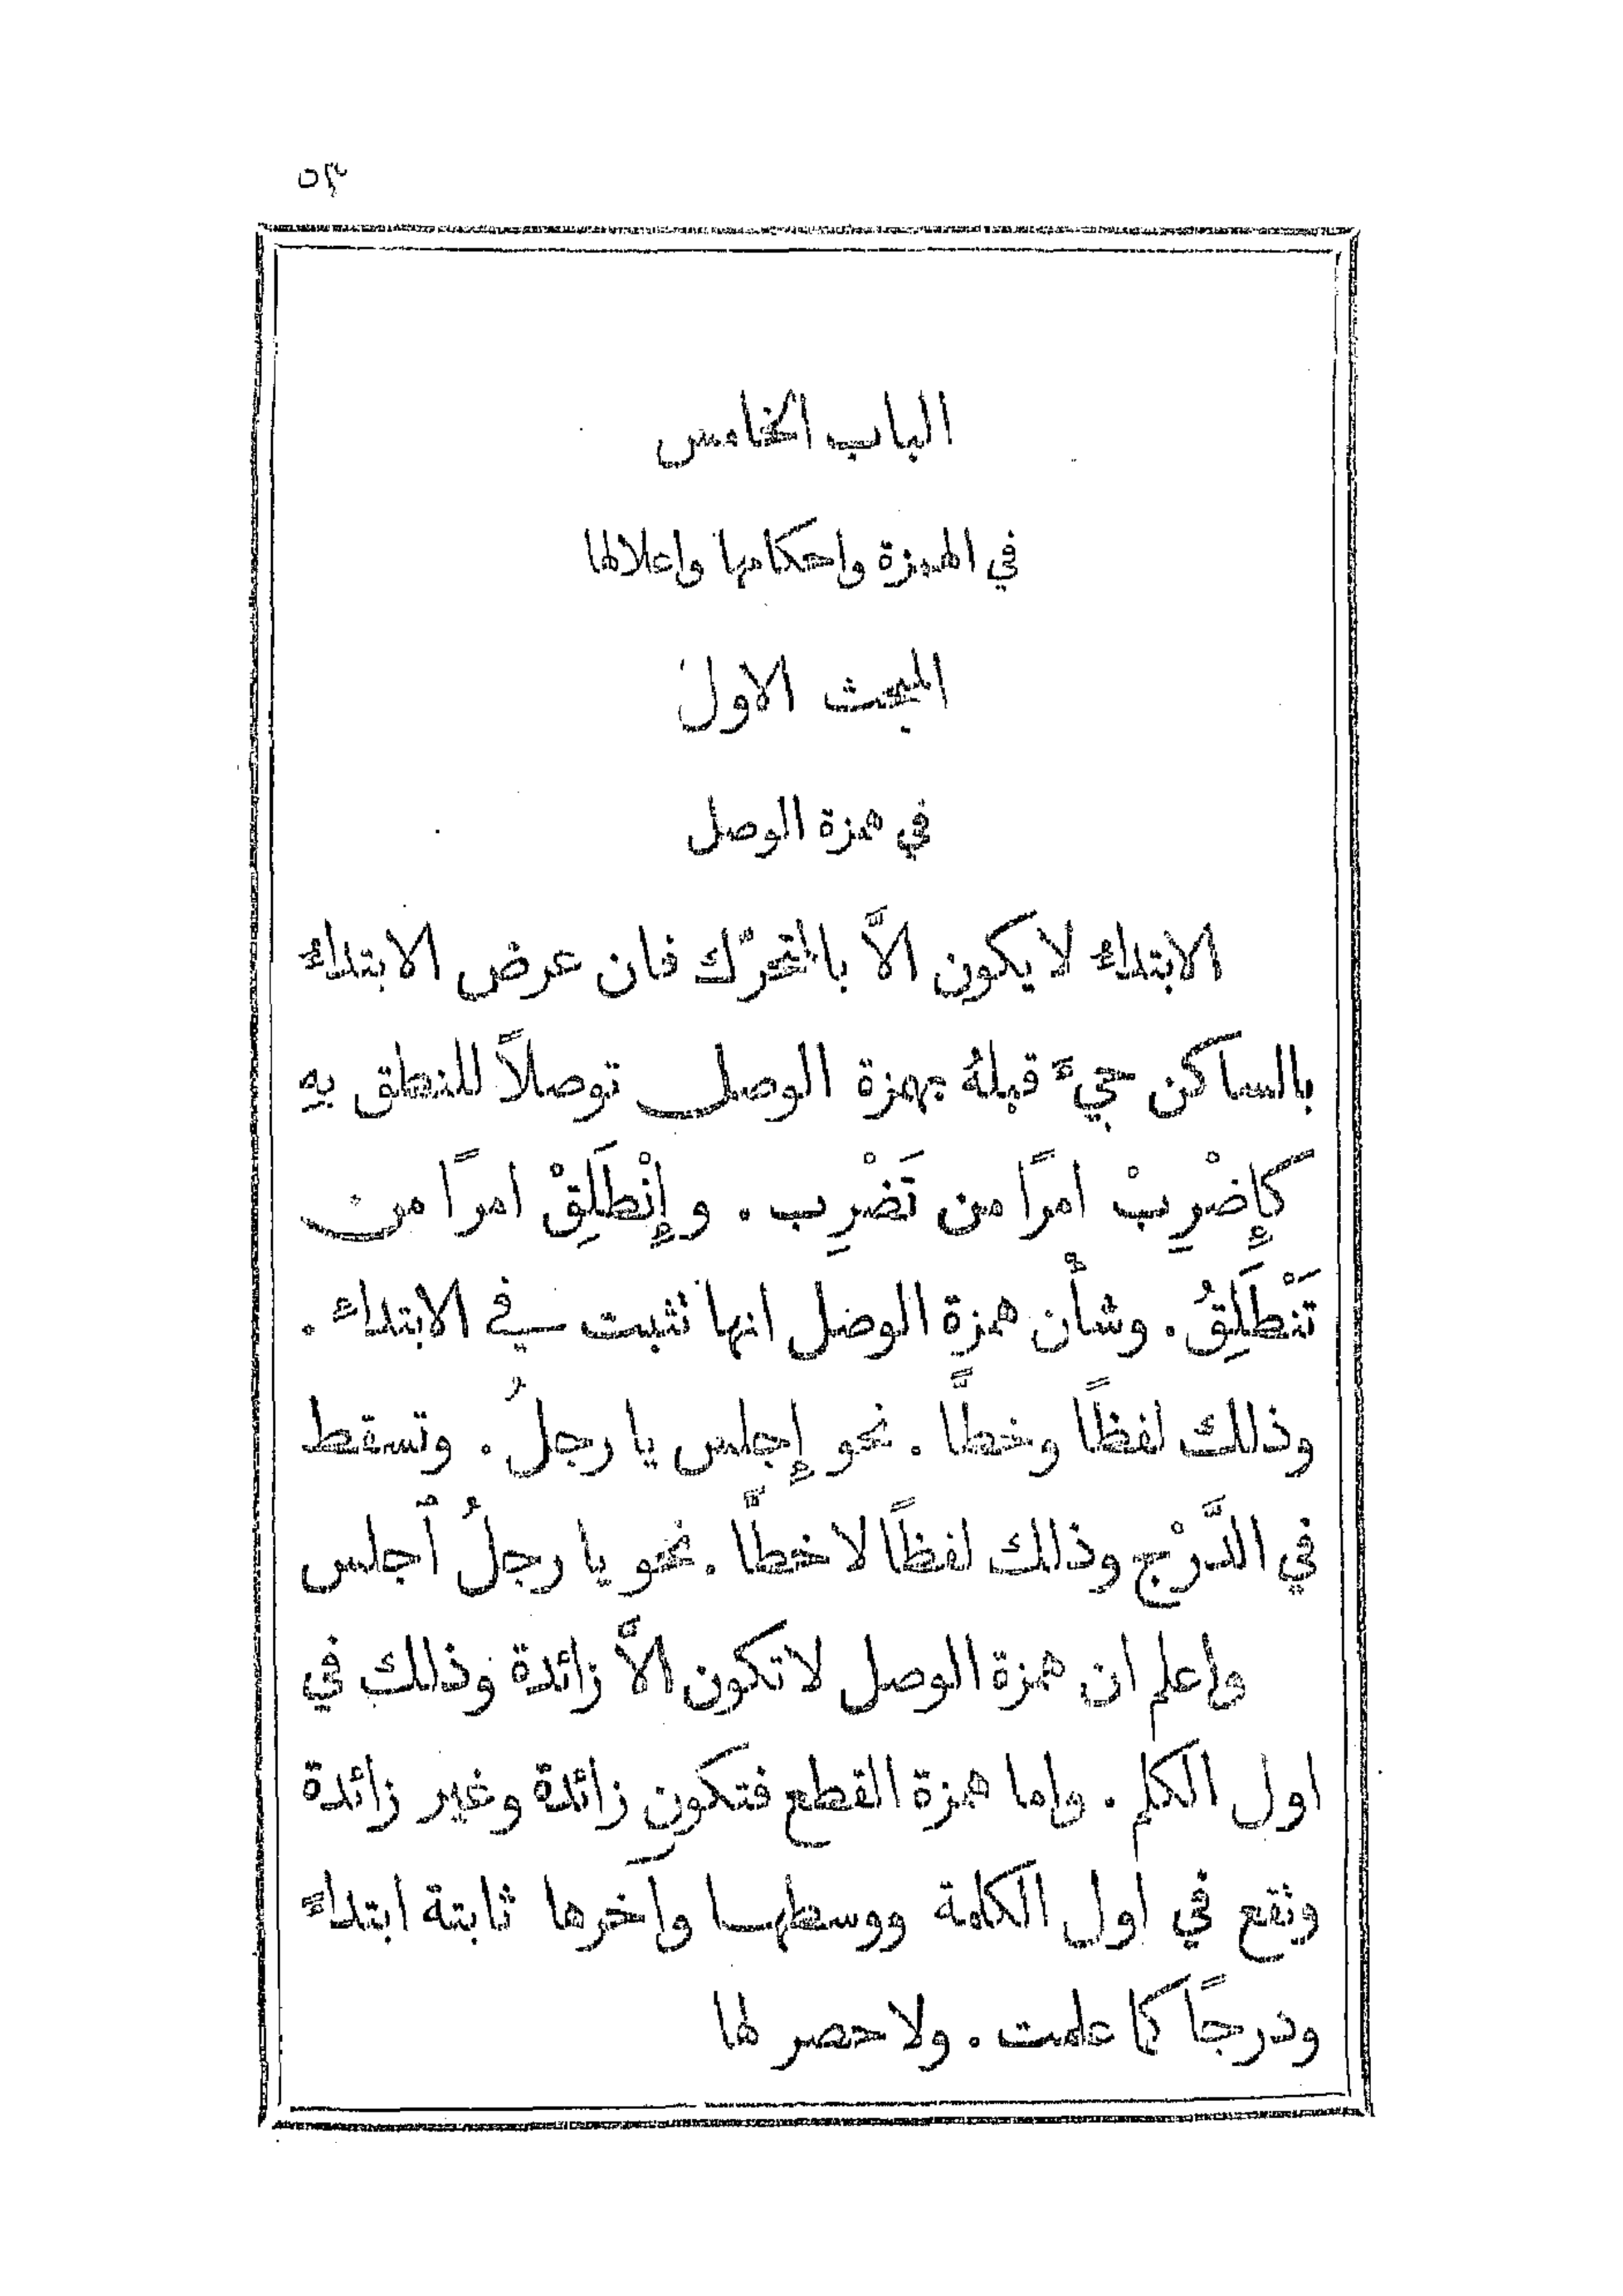 ٥٣
الباب الخامس
في الهمزة واحكامها واعلالها
المبحث الاول
في همزة الوصل
الابتداءُ لا يكون الَّا بالمتحرّك فان عرض الابتداءُ
بالساكن جيءَ قبلهُ بهمزة الوصل توصلاً للنطق بهِ
كإِضْرِبْ امرًا من تَضْرِب . وإِنْطَلِقْ امرًا من
تَنْطَلِقُ . وشأْن همزة الوصل انها تثبت في الابتداءِ .
وذلك لفظًا وخطًّا . نحو إِجلس يا رجلُ . وتسقط
في الدَّرْج وذلك لفظًا لا خطًّا . نحو يا رجلُ ٱجلس
واعلم ان همزة الوصل لا تكون الَّا زائدة وذلك في
اول الكلم . واما همزة القطع فتكون زائدة وغير زائدة
وتقع في اول الكلمة ووسطها وآخرها ثابتة ابتداءً
ودرجًا كما علمت . ولا حصر لها